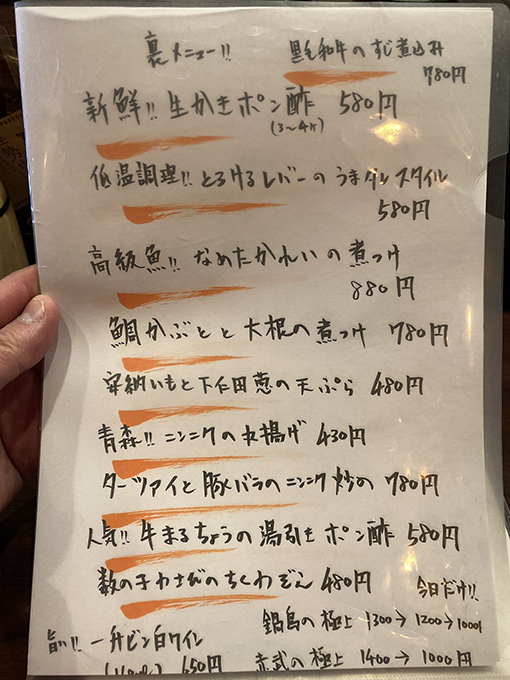 裏メニュー!!
黒毛和牛のすじ煮込み
780円
新鮮!! 生かきポン酢 580円
(3〜4ケ)
低温調理!! とろけるレバーのうまダレスタイル
580円
高級魚!! なめたかれいの煮つけ
880円
鯛かぶとと大根の煮つけ 780円
安納いもと下仁田葱の天ぷら 480円
青森!! ニンニクの丸揚げ 430円
ターツァイと豚バラのニンニク炒め 780円
人気!! 牛まるちょうの湯引きポン酢 580円
数の子わさびのちくわぞん 480円
今日だけ!!
鍋島の極上 1300→1200→1000円
旨い!! 一升ビン白ワイン
650円
赤武の極上 1400→1000円